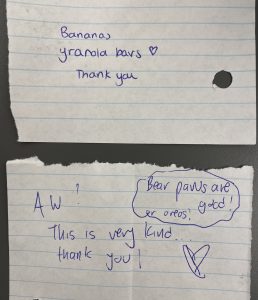 Bananas
granola bars ♡
Thank you
AW!
Bear paws are
good!
or oreos!
This is very kind..
thank you!